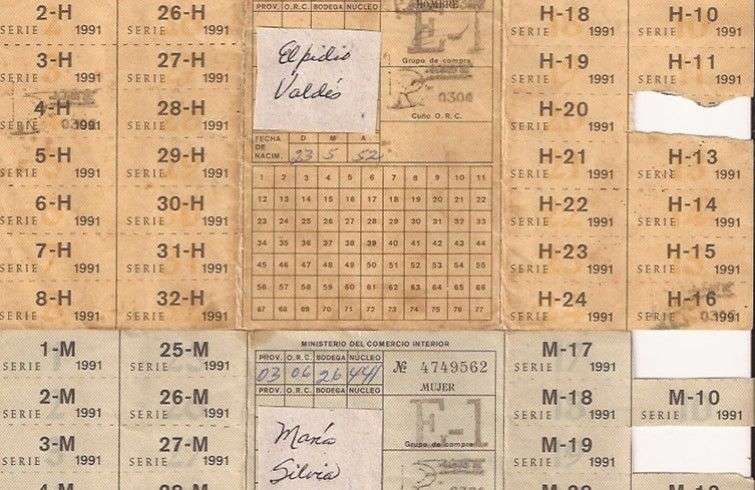 2-H
SERIE 1991
3-H
SERIE 1991
4-H
0304
5-H
SERIE 1991
6-H
SERIE 1991
7-H
SERIE 1991
8-H
SERIE 1991
26-H
SERIE 1991
27-H
SERIE 1991
28-H
SERIE 1991
29-H
SERIE 1991
30-H
SERIE 1991
31-H
SERIE 1991
32-H
SERIE 1991
PROV. O.R.C. BODEGA NÚCLEO
HOMBRE
E-1
Grupo de compra
Elpidio
Valdés
0304
Cuño O.R.C.
FECHA DE NACIM.
D M A
23 5 52
1 2 3 4 5 6 7 8 9 10 11
12 13 14 15 16 17 18 19 20 21 22
23 24 25 26 27 28 29 30 31 32 33
34 35 36 37 38 39 40 41 42 43 44
45 46 47 48 49 50 51 52 53 54 55
56 57 58 59 60 61 62 63 64 65 66
67 68 69 70 71 72 73 74 75 76 77
H-18
SERIE 1991
H-19
SERIE 1991
H-20
SERIE 1991
H-21
SERIE 1991
H-22
SERIE 1991
H-23
SERIE 1991
H-24
SERIE 1991
H-10
SERIE 1991
H-11
SERIE 1991
H-13
SERIE 1991
H-14
SERIE 1991
H-15
SERIE 1991
H-16
1991
1-M
SERIE 1991
2-M
SERIE 1991
3-M
SERIE 1991
4-M
25-M
SERIE 1991
26-M
SERIE 1991
27-M
SERIE 1991
MINISTERIO DEL COMERCIO INTERIOR
PROV. O.R.C. BODEGA NÚCLEO
03 06 26 441
PROV. O.R.C. BODEGA NÚCLEO
№ 4749562
MUJER
E-1
Grupo de compra
María
Silvia
M-17
SERIE 1991
M-18
SERIE 1991
M-19
SERIE 1991
M-10
SERIE 1991